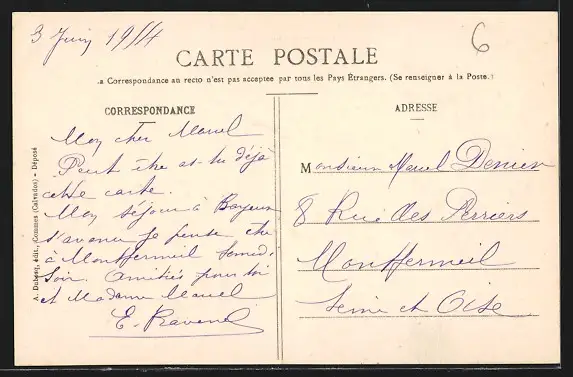 3 Juin 1914
6
CARTE POSTALE
La Correspondance au recto n'est pas acceptée par tous les Pays Étrangers. (Se renseigner à la Poste.)
CORRESPONDANCE
ADRESSE
Mon cher Marcel
Peut être as-tu déjà
cette carte.
Mon séjour à Bayeux
s'avance Je pense être
à Montfermeil Samedi
Soir. Amitiés pour toi
et Madame Marcel
E. Ravenel
Monsieur Marcel Denien
8 Rue des Perriers
Montfermeil
Seine et Oise
A. Dubosq, édit., Commes (Calvados) - Déposé